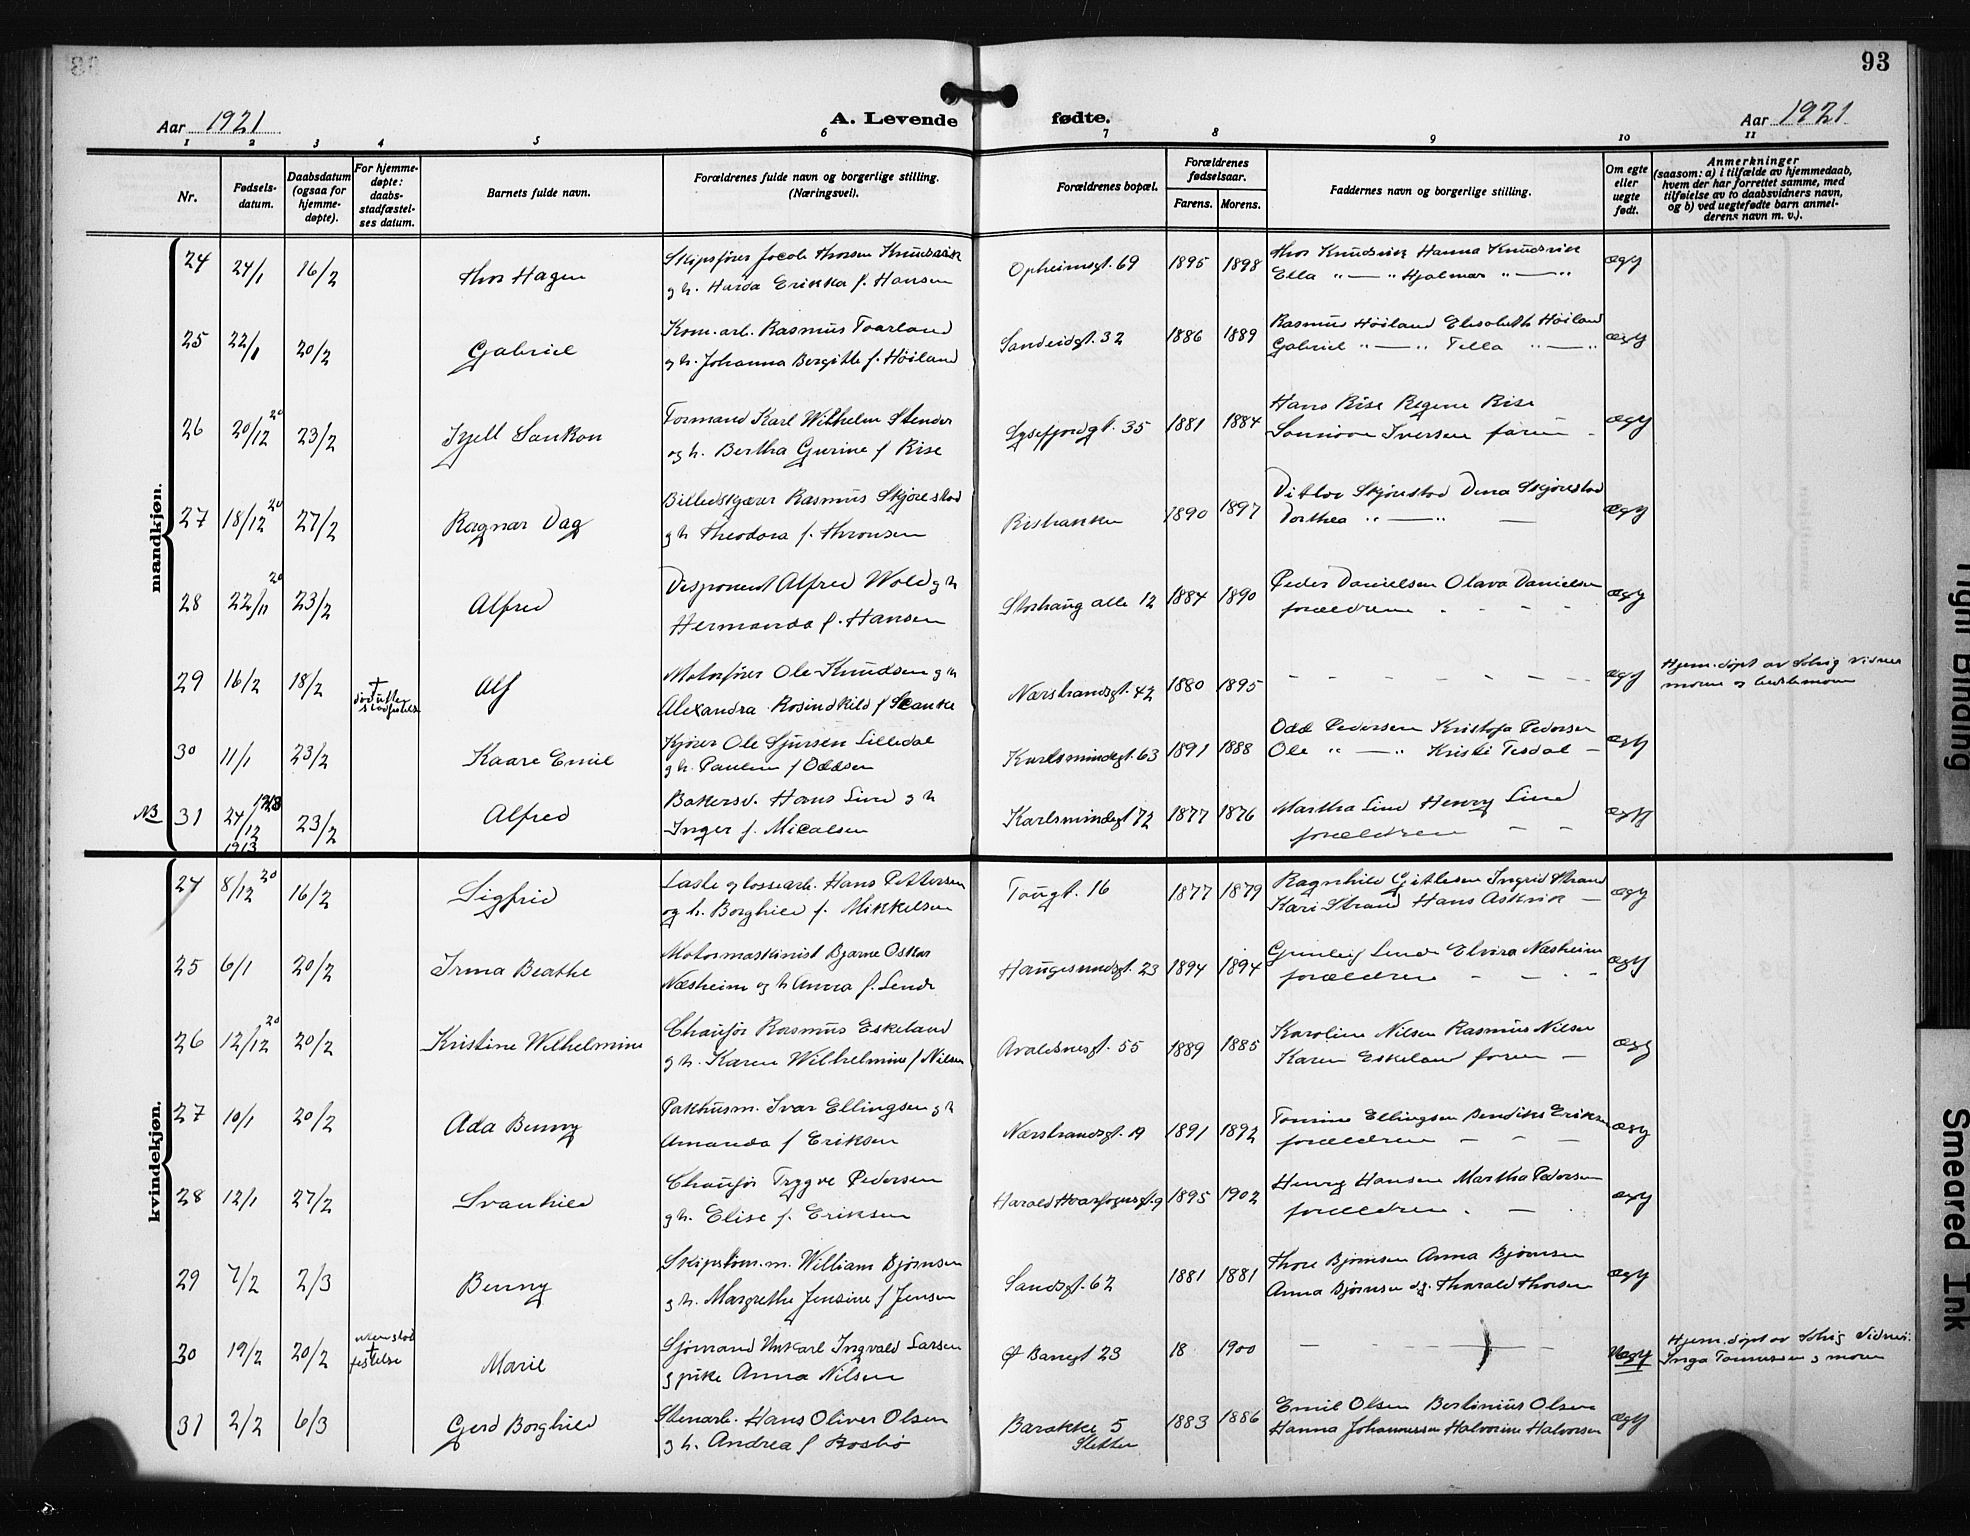 93
Aar 1921
A. Levende fødte.
Aar 1921
1 2 3 4 5 6 7 8 9 10 11
Nr.
Fødsels-
datum.
Daabsdatum
(ogsaa for
hjemme-
døpte).
For hjemme-
døpte:
daabs-
stadfæstel-
ses datum.
Barnets fulde navn.
Forældrenes fulde navn og borgerlige stilling.
(Næringsvei).
Forældrenes bopæl.
Forældrenes
fødselsaar.
Farens. Morens.
Faddernes navn og borgerlige stilling.
Om egte
eller
uegte
født.
Anmerkninger
(saasom: a) i tilfælde av hjemmedaab,
hvem der har forrettet samme, med
tilføielse av to daabsvidners navn,
og b) ved uegtefødte barn anmel-
derens navn m. v.).
mandkjøn.
24 24/1 16/2 Thor Hagen
Skipsfører Jacob Thorsen Knudsvik
g h. Erikka f. Hansen
Opheimsgt. 69 1895 1898
Thor Knudsvik Hanna Knudsvik
Ella " — " Hjalmar " — "
ægt
25 22/1 20/2 Gabriel
Kom. arb. Rasmus Taarland
og h. Johanna Bergitte f. Høiland
Sandeidgt. 32 1886 1889
Rasmus Høiland Elisabeth Høiland
Gabriel " — " Tella " — "
ægt
26 20/12 20 23/2
Formand Karl Wilhelm Stender
og h. Bertha Gurine f Rise
Lysefjordgt. 35 1881 1884
Hans Rise Regine Rise
Iversen faren -
ægt
27 18/12 20 27/2 Ragnar Dag
Billedskjærer Rasmus Skjørestad
g h Theodora f. Thronsen
Risbakken 1890 1897
Ditlov Skjørestad Dina Skjørestad
Dorthea " — " —
ægt
28 22/11 20 23/2 Alfred
Disponent Alfred Wold g h
Hermanda f. Hansen
Storhaug alle 12 1884 1890
Peder Danielsen Olava Danielsen
forældrene - - - -
ægt
29 16/2 18/2 † død uten
stadfestelse
Alf
Motorfører Ole Knudsen g h
Alexandra Rosindkild f Skanke
Nærstrandsgt. 42 1880 1895
- - - - - - -
ægt
Hjem. døpt av
moren og bestemoren
30 11/1 23/2 Kaare Emil
Kjører Ole Sjursen Lilledal
g h. Pauline f Oddsen
Karlsmindegt. 63 1891 1888
Odd Pedersen Kristofa Pedersen
Ole " — " Kristi Tesdal -
ægt
NB 31 24/12 1913 1913 23/2 Alfred
Bakersv. Hans Lund g h
Inger f. Micalsen
Karlsmindegt 72 1877 1876
Martha Lund Henry Lund
forældrene - -
ægt
kvindekjøn.
24 8/12 20 16/2 Sigfrid
Laste og lossearb. Hans Pettersen
og h. Borghild f. Mikkelsen
Tougt. 16 1877 1879
Ragnhild Gitlesen Ingrid Strand
Kari Strand Hans Askvik -
ægt
25 6/1 20/2 Irma Beathe
Motormaskinist Bjarne Oskar
Næsheim og h Anna f. Lende
Haugesundsgt. 23 1894 1894
Lende Elvira Næsheim
forældrene - - - -
ægt
26 12/12 20 20/2 Kristine Wilhelmine
Chaufør Rasmus Eskeland
g h. Karen Wilhelmine f Nilsen
Avaldsnesgt. 55 1889 1885
Karoline Nilsen Rasmus Nilsen
Karen Eskeland faren -
ægt
27 10/1 20/2 Ada Benny
Pakhusm. Ivar Ellingsen g h
Amanda f Eriksen
Nærstrandsgt. 19 1891 1892
Tomine Ellingsen Bendiks Eriksen
forældrene - - -
ægt
28 12/1 27/2 Svanhild
Chaufør Trygve Pedersen
g h. Elise f. Eriksen
Harald Haarfagersgt. 9 1895 1902
Henry Hansen Martha Pedersen
forældrene . - .
ægt
29 7/2 2/3 Benny
Skipstøm. m. William Bjørnsen
g h. Margrethe Jensine f Jensen
Sandsgt. 62 1881 1881
Thore Bjørnsen Anna Bjørnsen
Anna Bjørnsen dg. Tharald Thorsen
ægt
30 19/2 20/2 uten stad
† festelse
Marie
Sjømand Unkarl Ingvald Larsen
g pike Anna Nilsen
Ø Banegt 23 18 1900
- - - - - -
Uægt
Hjem. døpt av
Inga Tonnessen g moren
31 2/2 6/3 Gerd Borghild
Stenarb. Hans Oliver Olsen
g h. Andrea f Rosbø
Barakke 5
Sletten
1883 1886
Emil Olsen Bertinius Olsen
Hanna Johannessen Halvorine Halvorsen
ægt
Tight Binding
Smeared Ink